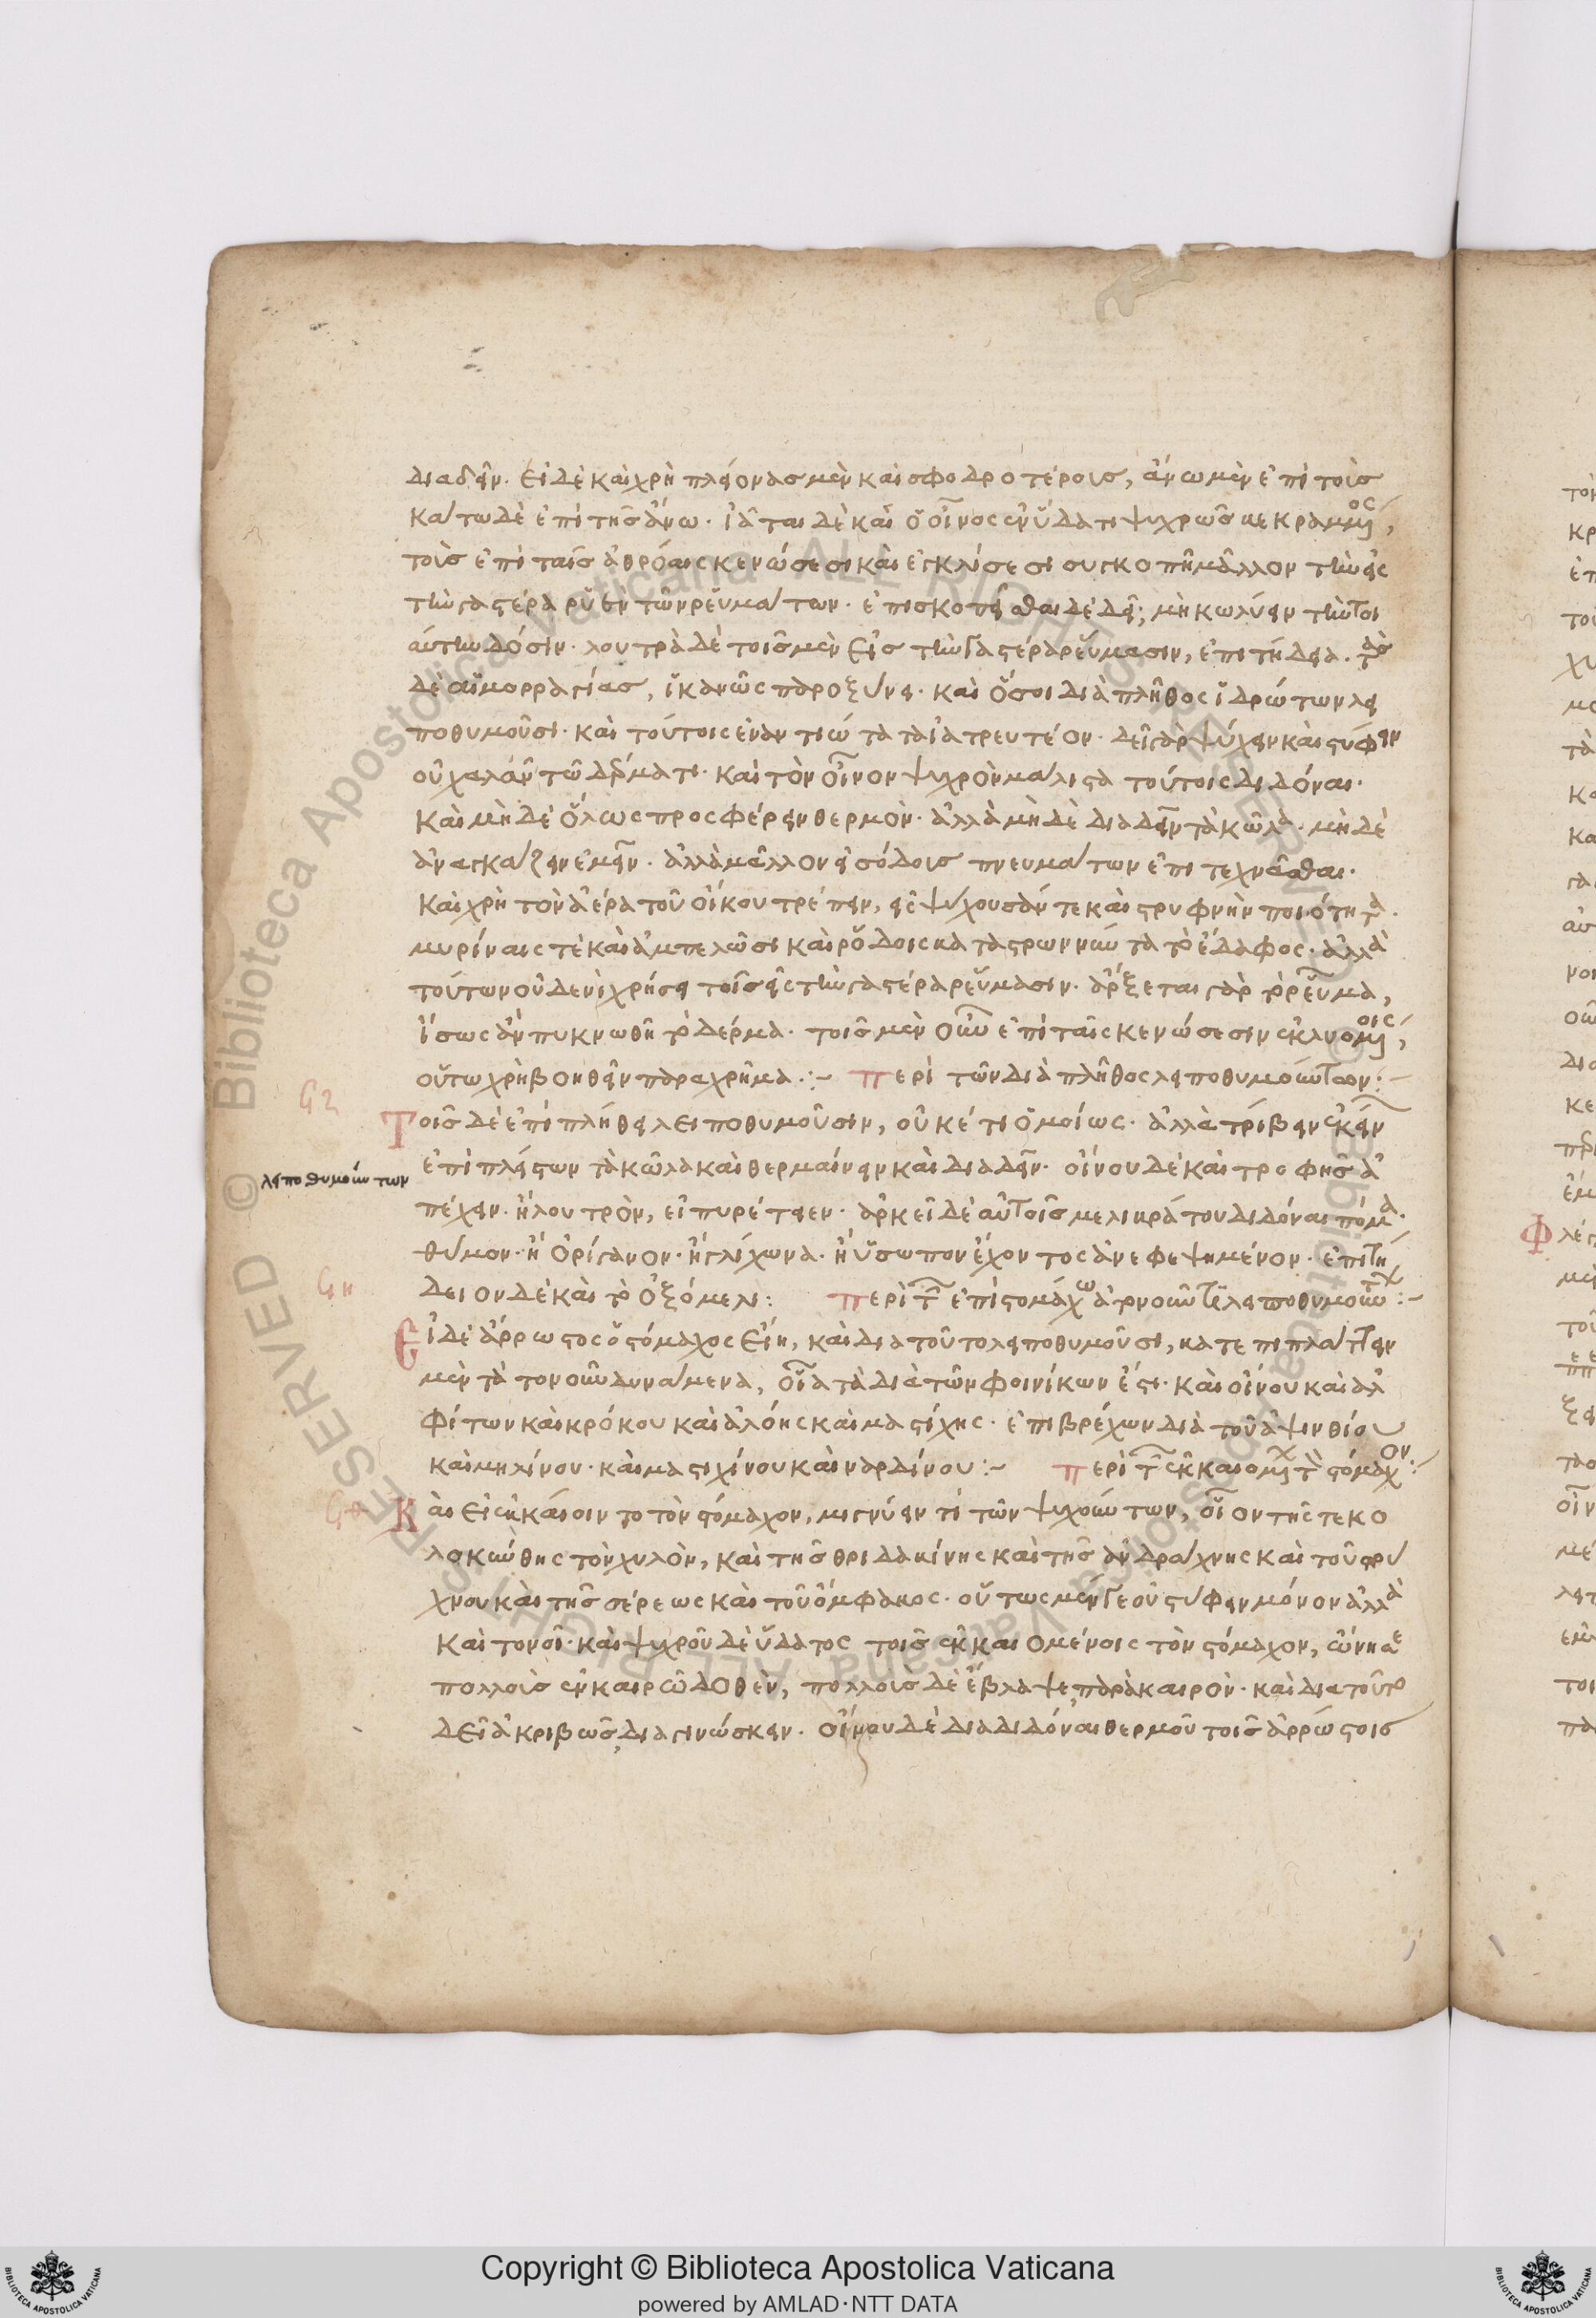 διαδεῖν. εἰ δὲ καὶ χρὴ πλείονας μὲν καὶ σφοδροτέροις, ἄνω μὲν ἐπὶ τοῖς
κάτω δὲ ἐπὶ τῆς ἄνω. ἰᾶται δὲ καὶ ὁ οἶνος ἐν ὕδατι ψυχρῶς κεκραμμένος,
τοῖς ἐπὶ ταῖς ἀθρόαις κενώσεσι καὶ ἐγκλίσεσι συσκοπῆ μᾶλλον τὴν εἰς
τὴν γαστέρα ῥύσιν τῶν ῥευμάτων. ἐπισκοπεῖσθαι δὲ δεῖ; μὴ κωλύειν τὴν τοι
αύτην δόσιν. λουτρὰ δὲ τοῖς μὲν εἰς τὴν γαστέρα ῥεύμασιν, ἐπιτήδεια. τὰς
δὲ αἱμορραγίας, ἱκανῶς παροξύνει. καὶ ὅσοι διὰ πλῆθος ἱδρώτων λει
ποθυμοῦσι. καὶ τούτοις ἐναντιώτατα ἰατρευτέον. δεῖ γὰρ ψύχειν καὶ στύφειν
οὐ χαλᾶν τῶ δέρματι. καὶ τὸν οἶνον ψυχρὸν μάλιστα τούτοις διδόναι.
καὶ μὴ δὲ ὅλως προσφέρειν θερμόν. ἀλλὰ μὴ δὲ διαδεῖν τὰ κῶλα. μὴ δὲ
ἀναγκάζειν ἐμεῖν. ἀλλὰ μᾶλλον εἰσόδοις πνευμάτων ἐπιτεχνᾶσθαι.
καὶ χρὴ τὸν ἀέρα τοῦ οἴκου τρέπειν, εἰς ψύχουσάν τε καὶ στρυφνὴν ποιότητα.
μυρίναις τὲ καὶ ἀμπελῶσι καὶ ῥόδοις καταστρωννύντα τὸ ἔδαφος. ἀλλὰ
τούτων οὐδενὶ χρήσῃ τοῖς εἰς τὴν γαστέρα ῥεύμασιν. ἄρξεται γὰρ τὸ ῥεῦμα,
ἴσως ἂν πυκνωθῆ τὸ δέρμα. τοῖς μὲν οὖν ἐπὶ ταῖς κενώσεσιν ἐκλυομένοις,
οὕτω χρὴ βοηθεῖν παραχρῆμα. :– περὶ τῶν διὰ πλῆθος λειποθυμούντων :–
Ϛζ
Τοῖς δὲ ἐπὶ πλήθει λειποθυμοῦσιν, οὐκέτι ὁμοίως. ἀλλὰ τρίβειν ἐκείν
λειποθυμούντων
ἐπὶ πλεῖστον τὰ κῶλα καὶ θερμαίνειν καὶ διαδεῖν. οἴνου δὲ καὶ τροφῆς ἀ
πέχειν. ἢ λουτρὸν, εἰ πυρέττειεν. ἀρκεῖ δὲ αὐτοῖς μελικράτου διδόναι πόμα.
θύμον. ἢ ὀρίγανον. ἢ γλίχωνα. ἢ ὕσωπον ἔχοντος ἀνεφεψημένον. ἐπιτή
Ϛη
δειον δὲ καὶ τὸ ὀξόμελι: περὶ τῶν ἐπὶ στομάχω ἀτονοῦντι λειποθυμούντων :–
Εἰ δὲ ἄρρωστος ὁ στόμαχος εἴη, καὶ διὰ τοῦτο λειποθυμοῦσι, κατεπιπλάττειν
μὲν τὰ τονοῦν δυνάμενα, οἷα τὰ διὰ τῶν φοινίκων ἐστι. καὶ οἴνου καὶ ἀλ
φίτων καὶ κρόκου καὶ ἀλόης καὶ μαστίχης. ἐπιβρέχων διὰ τοῦ ἀψινθίου
καὶ μηλίνου. καὶ μαστιχίνου καὶ ναρδίνου :– περὶ τῶν ἐκκαιομένων τὸν στόμαχον :–
Ϛθ
Καὶ εἰ ἐκκάοιντο τὸν στόμαχον, μιγνύειν τὶ τῶν ψυχόντων, οἷον τῆς τε κο
λοκύνθης τὸν χυλὸν, καὶ τῆς θριδακίνης καὶ τῆς ἀνδράχνης καὶ τοῦ στρύ
χνου καὶ τῆς σέρεως καὶ τοῦ ὄμφακος. οὕτως μέντοι γε οὐ στύφειν μόνον ἀλλὰ
καὶ τονοῖ. καὶ ψυχροῦ δὲ ὕδατος τοῖς ἐκκαιομένοις τὸν στόμαχον, ὤνησε
πολλοῖς ἐν καιρῶ δοθὲν, πολλοὺς δὲ ἔβλαψε παρὰ καιρὸν. καὶ διὰ τοῦτο
δεῖ ἀκριβῶς διαγινώσκειν. οἴνου δὲ διαδιδόναι θερμοῦ τοῖς ἀρρώστοις
Copyright © Biblioteca Apostolica Vaticana
powered by AMLAD·NTT DATA